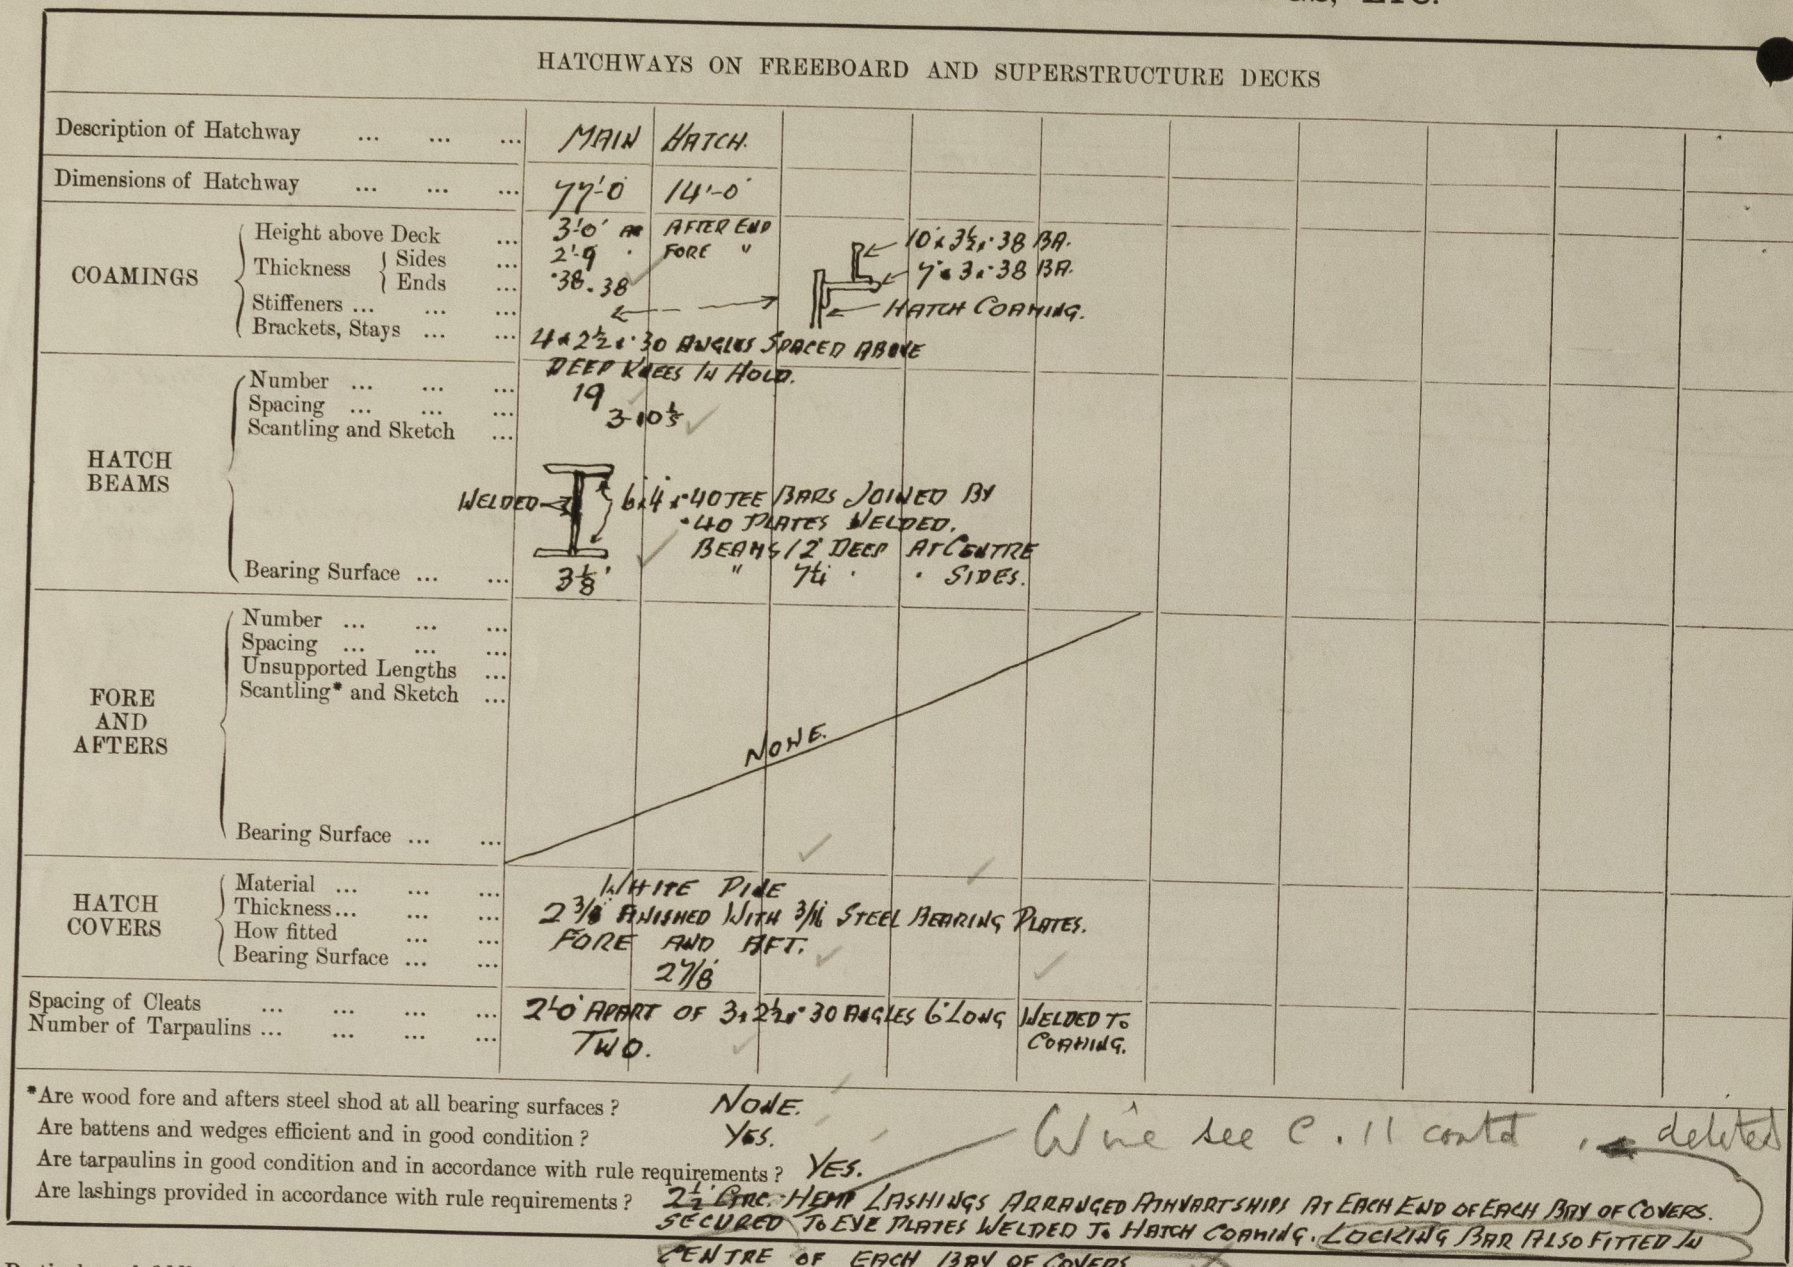 ETC.
HATCHWAYS ON FREEBOARD AND SUPERSTRUCTURE DECKS
Description of Hatchway ... ... ... MAIN HATCH.
Dimensions of Hatchway ... ... ... 77'-0" 14'-0"
COAMINGS
Height above Deck ... 3'-0" AT AFTER END
Thickness { Sides ... 2'-9 " FORE "
Ends ... .38 .38
Stiffeners ... ... ...
Brackets, Stays ... ... 4 x 2½ x .30 ANGLES SPACED ABOVE
DEEP KNEES IN HOLD.
10 x 3½ x .38 BA.
7 x 3 x .38 BA.
HATCH COAMING.
HATCH
BEAMS
Number ... ... ... 19
Spacing ... ... ... 3-10
Scantling and Sketch ...
WELDED
6 x 4 x .40 TEE BARS JOINED BY
.40 PLATES WELDED.
BEAMS 12" DEEP AT CENTRE
" 7¼ " " SIDES.
Bearing Surface ... ... 3⅛"
FORE
AND
AFTERS
Number ... ... ...
Spacing ... ... ...
Unsupported Lengths ...
Scantling* and Sketch ...
NONE.
Bearing Surface ... ...
HATCH
COVERS
Material ... ... ... WHITE PINE
Thickness... ... ... 2 3/8" FINISHED WITH 3/16 STEEL BEARING PLATES.
How fitted ... ... FORE AND AFT.
Bearing Surface ... ... 2 7/8"
Spacing of Cleats ... ... ... ... 2'-0" APART OF 3 x 2½ x .30 ANGLES 6" LONG WELDED TO
COAMING.
Number of Tarpaulins ... ... ... ... TWO.
*Are wood fore and afters steel shod at all bearing surfaces ? NONE.
Are battens and wedges efficient and in good condition ? YES.
Wire see C. 11 contd deleted
Are tarpaulins in good condition and in accordance with rule requirements ? YES.
Are lashings provided in accordance with rule requirements ? 2½" CIRC. HEMP LASHINGS ARRANGED ATHWARTSHIPS AT EACH END OF EACH BAY OF COVERS.
SECURED TO EYE PLATES WELDED TO HATCH COAMING. LOCKING BAR ALSO FITTED IN
CENTRE OF EACH BAY OF COVERS